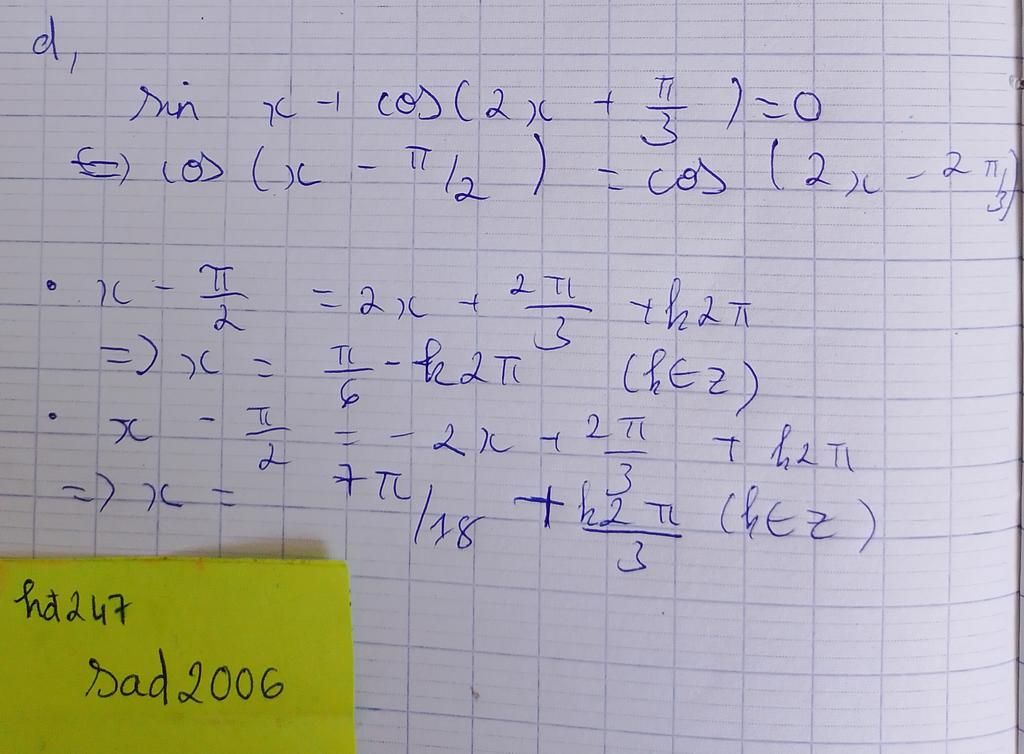 d,
sin x + cos(2x + π/3) = 0
⇔ cos(x - π/2) = cos(2x - 2π/3)
• x - π/2 = 2x + 2π/3 + k2π
=> x = π/6 - k2π (k∈Z)
• x - π/2 = - 2x + 2π/3 + k2π
=> x = 7π/18 + k2π/3 (k∈Z)
hd247
sad2006